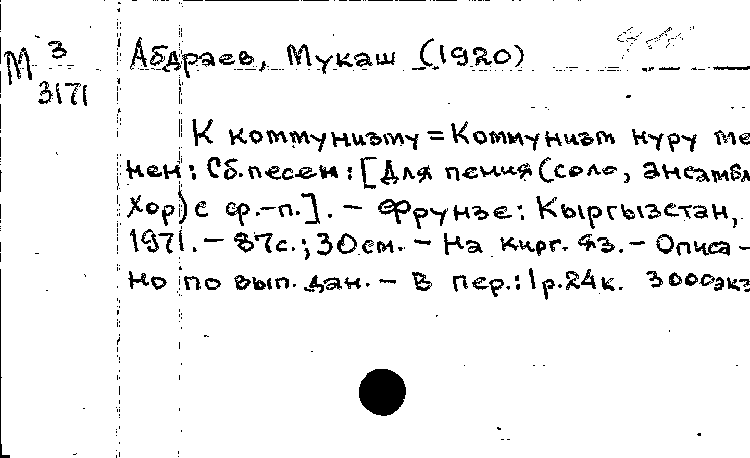 М 3
3171
Абдраев, Мукаш (1920)
К коммунизму = Коммунизм нуру ме
нен: Сб. песен: [Для пения (соло, ансамбл
хор) с ф.-п.]. – Фрунзе: Кыргызстан,
1971. – 87с.; 30см. – На кирг. яз. – Описа –
но по вып. дан. – В пер.: 1р.24к. 3000экз